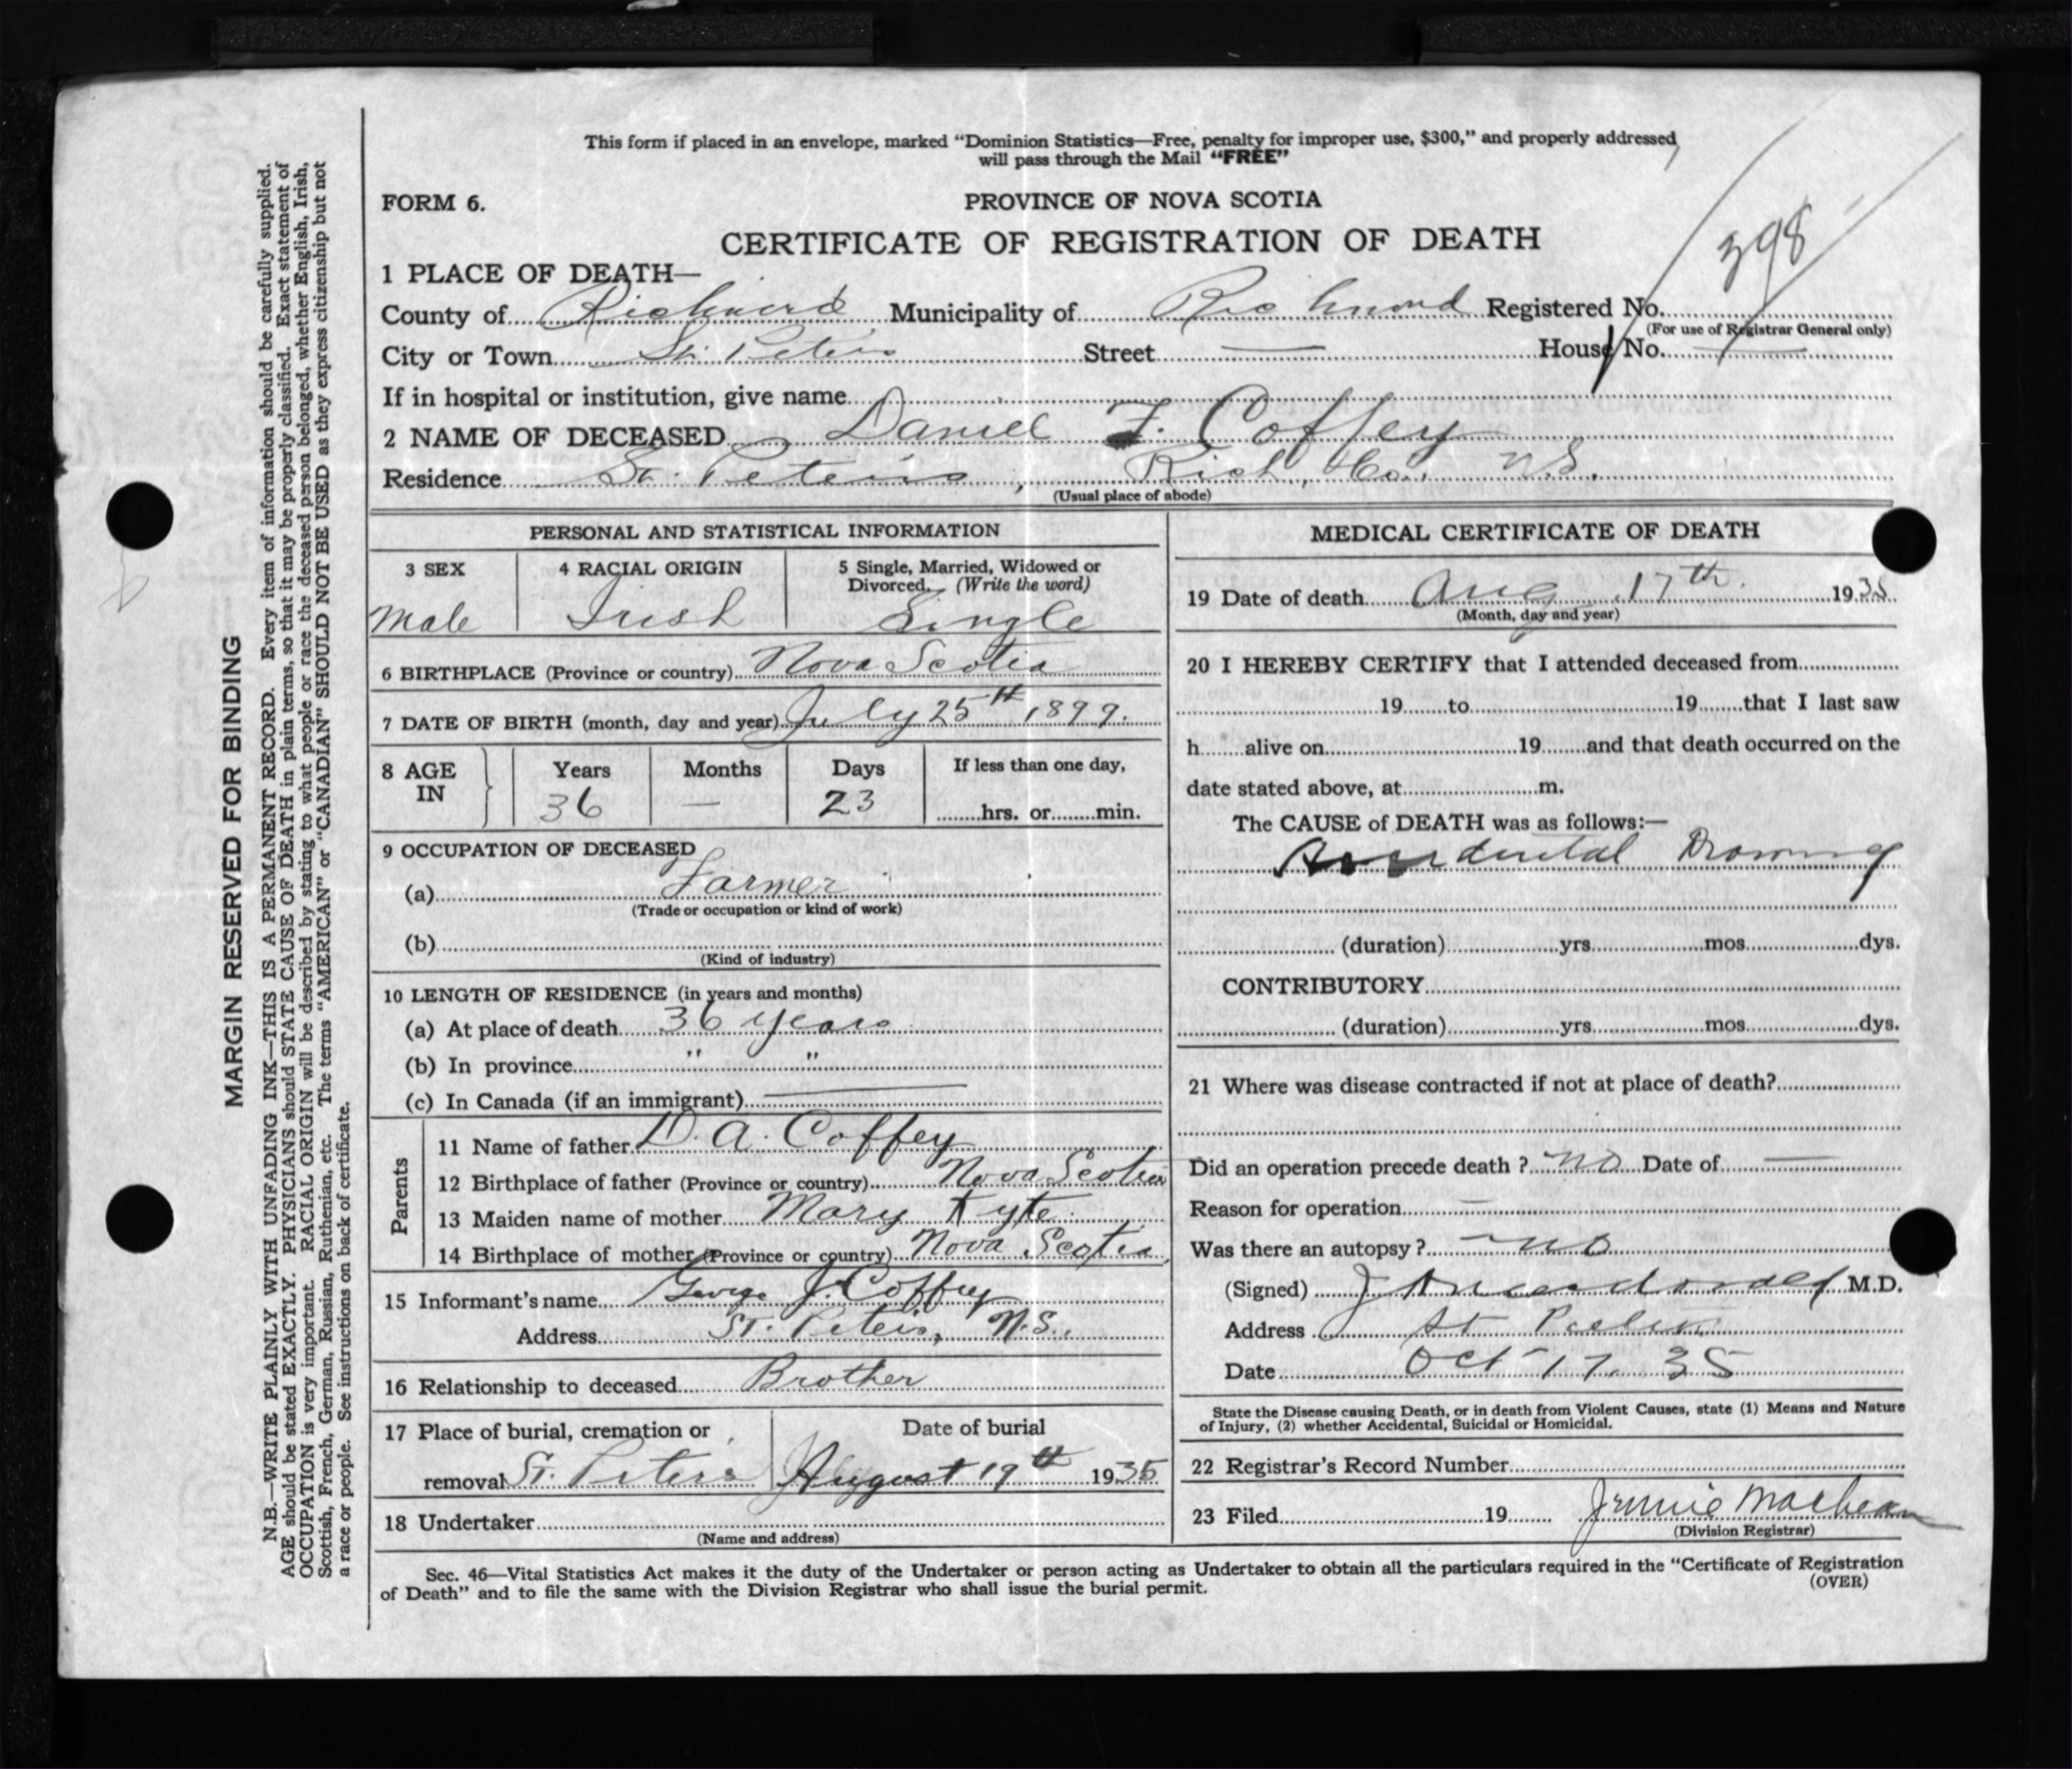 This form if placed in an envelope, marked "Dominion Statistics—Free, penalty for improper use, $300," and properly addressed
will pass through the Mail "FREE"
FORM 6.
PROVINCE OF NOVA SCOTIA
CERTIFICATE OF REGISTRATION OF DEATH
398
1 PLACE OF DEATH—
County of Richmond Municipality of Richmond Registered No.
(For use of Registrar General only)
City or Town St. Peters Street — House No. —
If in hospital or institution, give name
2 NAME OF DECEASED Daniel F. Coffey
Residence St. Peters, Rich. Co., N.S.
(Usual place of abode)
PERSONAL AND STATISTICAL INFORMATION
3 SEX 4 RACIAL ORIGIN 5 Single, Married, Widowed or
Divorced. (Write the word)
Male Irish Single
6 BIRTHPLACE (Province or country) Nova Scotia
7 DATE OF BIRTH (month, day and year) July 25th 1899.
8 AGE IN Years Months Days If less than one day,
36 — 23 hrs. or min.
9 OCCUPATION OF DECEASED
(a) Farmer
(Trade or occupation or kind of work)
(b)
(Kind of industry)
10 LENGTH OF RESIDENCE (in years and months)
(a) At place of death 36 years
(b) In province " "
(c) In Canada (if an immigrant) —
Parents
11 Name of father D. A. Coffey
12 Birthplace of father (Province or country) Nova Scotia
13 Maiden name of mother Mary Kyte
14 Birthplace of mother (Province or country) Nova Scotia
15 Informant's name George J. Coffey
Address St. Peters, N.S.
16 Relationship to deceased Brother
17 Place of burial, cremation or Date of burial
removal St. Peters August 19th 1935
18 Undertaker
(Name and address)
MEDICAL CERTIFICATE OF DEATH
19 Date of death Aug 17th. 1935
(Month, day and year)
20 I HEREBY CERTIFY that I attended deceased from
19 to 19 that I last saw
h alive on 19 and that death occurred on the
date stated above, at m.
The CAUSE of DEATH was as follows:—
Accidental Drowning
(duration) yrs. mos. dys.
CONTRIBUTORY
(duration) yrs. mos. dys.
21 Where was disease contracted if not at place of death?
Did an operation precede death? no Date of —
Reason for operation —
Was there an autopsy? no
(Signed) M.D.
Address St Peters
Date Oct 17. 35
State the Disease causing Death, or in death from Violent Causes, state (1) Means and Nature
of Injury, (2) whether Accidental, Suicidal or Homicidal.
22 Registrar's Record Number
23 Filed 19 Jennie
(Division Registrar)
Sec. 46—Vital Statistics Act makes it the duty of the Undertaker or person acting as Undertaker to obtain all the particulars required in the "Certificate of Registration
of Death" and to file the same with the Division Registrar who shall issue the burial permit.
(OVER)
MARGIN RESERVED FOR BINDING
N.B.—WRITE PLAINLY WITH UNFADING INK—THIS IS A PERMANENT RECORD. Every item of information should be carefully supplied.
AGE should be stated EXACTLY. PHYSICIANS should STATE CAUSE OF DEATH in plain terms, so that it may be properly classified. Exact statement of
OCCUPATION is very important. RACIAL ORIGIN will be described by stating to what people or race the deceased person belonged, whether English, Irish,
Scottish, French, German, Russian, Ruthenian, etc. The terms "AMERICAN" or "CANADIAN" SHOULD NOT BE USED as they express citizenship but not
a race or people. See instructions on back of certificate.